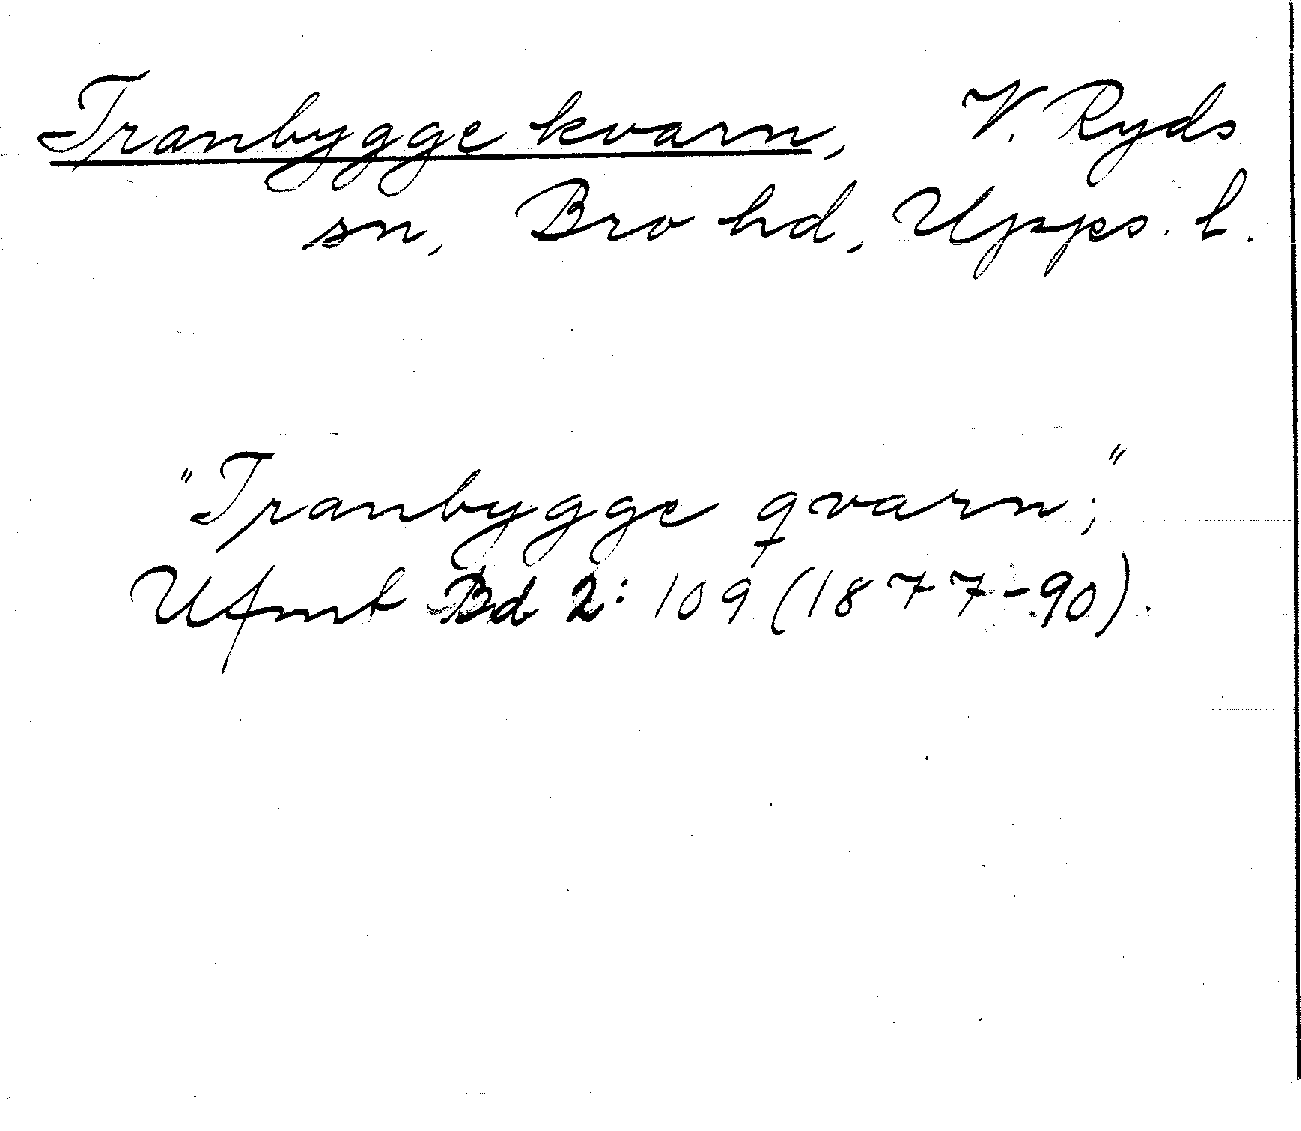 Tranbygge kvarn, V. Ryds
sn, Bro hd, Upps. l.
"Tranbygge qvarn;"
Ufmt Bd 2: 109 (1877-90).